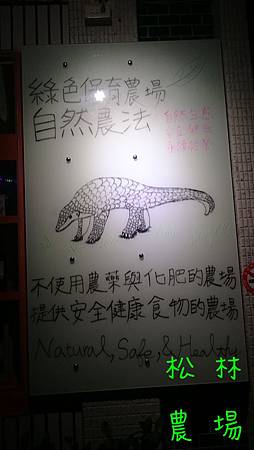 綠色保育農場
自然農法
自然生態
安全健康
不使用農藥與化肥的農場
提供安全健康食物的農場
Natural, Safe, & Healthy
松林
農場